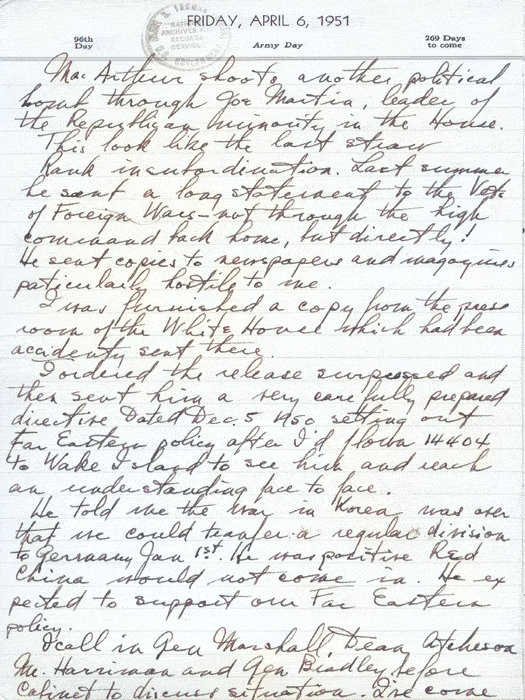 FRIDAY, APRIL 6, 1951
96th
Day
Army Day
269 Days
to come
MacArthur shoots another political
bomb through Joe Martin, leader of
the Republican minority in the House.
This look like the last straw
Rank insubordination. Last summer
he sent a long statement to the Vets
of Foreign Wars—not through the high
command back home, but directly!
He sent copies to newspapers and magazines
paticularly hostile to me.
I was furnished a copy from the press
room of the White House which had been
accidenty sent there.
I ordered the release surpressed and
then sent him a very carefully prepared
directive Dated Dec. 5 1950 setting out
Far Eastern policy after I'd flown 14404
to Wake Island to see him and reach
an understanding face to face.
He told me the war in Korea was over
that we could tranfer a regular division
to Germany Jan 1st. He was positive Red
China would not come in. He ex
pected to support our Far Eastern
policy.
I call in Gen Marshall, Dean Atcheson
Mr. Harriman and Gen. Bradley before
Cabinet to discuss situation.